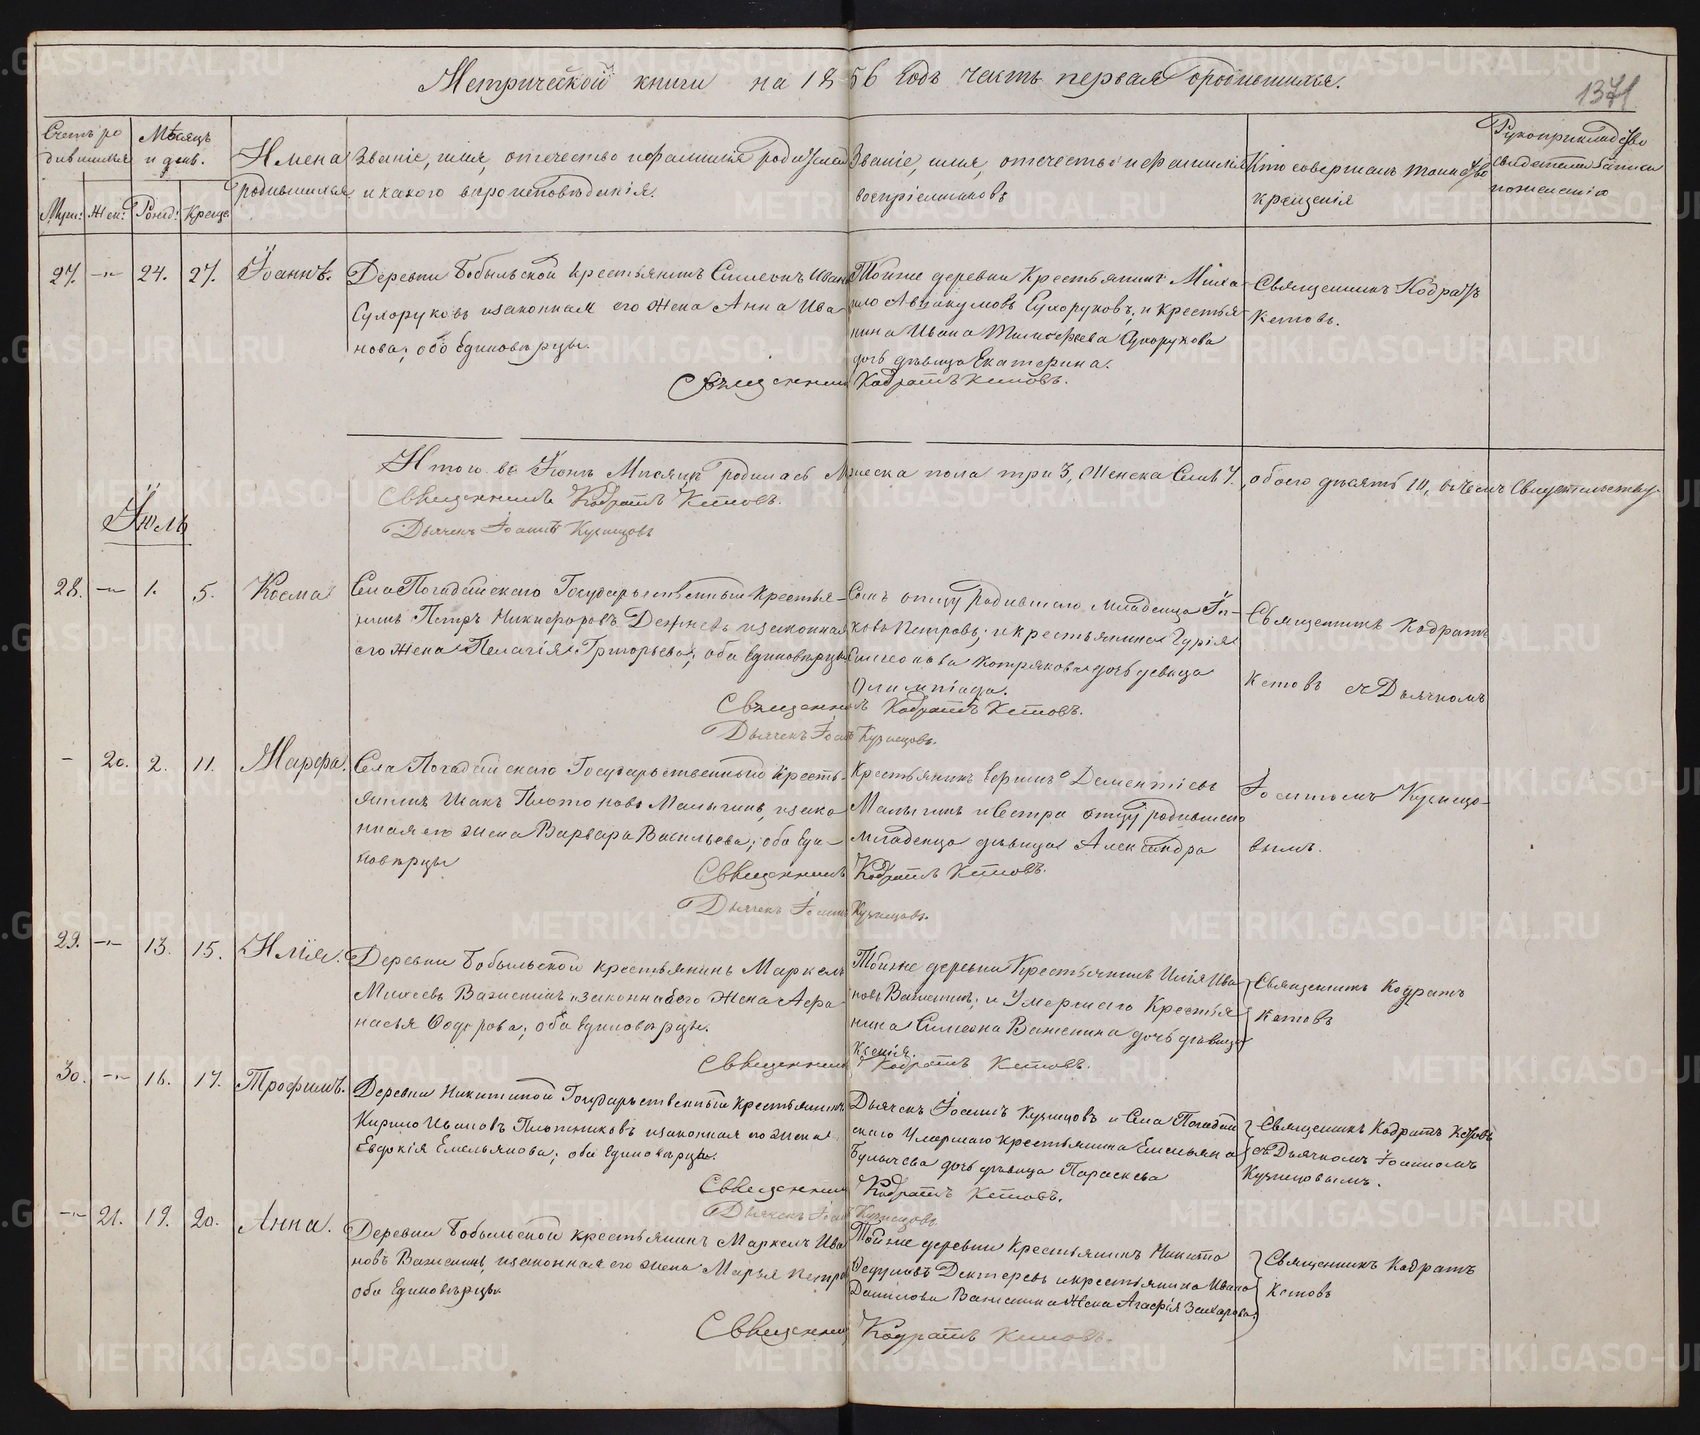 Метрической книги на 1856 годъ часть первая о родившихся.
1371
Счетъ ро
дившихся
Мѣсяцъ
и день.
Муж: Жен: Рожд: Крещ:
Имена
родившихся
Званіе, имя, отечество и фамилія родителей
и какого вѣроисповѣданія.
Званіе, имя, отечество и фамилія
воспріемниковъ
Кто совершалъ таинство
крещенія
Рукоприкладство
свидетелей записи
по желанію
27. -"- 24. 27. Іоаннъ.
Деревни Бобыльской крестьянинъ Симеонъ Ивано
Сухоруковъ и законная его жена Анна Ива
нова; обо Единовѣрцы.
Той же деревни Крестьянинъ Миха
ило Аввакумовъ Сухоруковъ, и крестья
нина Ивана Тимофеева Сухорукова
дочь дѣвица Екатерина.
Священникъ Кодратъ
Кетовъ.
Священник Кодратъ Кетовъ.
Итого въ Іюнѣ Мѣсяцѣ родилось Мужеска пола три 3, Женска Семь 7., обоего десять 10, въ чемъ Свидетельству-
Священникъ Кодратъ Кетовъ.
Дьячекъ Іоаннъ Кузнецовъ
Іюль
28. -"- 1. 5. Косма
Села Погадайскаго Государственный Крестья-
нинъ Петръ Никифоровъ Дежневъ и законная
его Жена Пелагія Григорьева; оба Единовѣрцы
Сынъ отцу родившаго Младенца Яковъ
Петровъ; и крестьянина Гурія
Симеонова дочь девица
Олимпіада.
Священникъ Кодратъ
Кетовъ съ Дьячкомъ
Священникъ Кодратъ Кетовъ.
Дьячекъ Іоаннъ Кузнецовъ.
- 20. 2. 11. Марфа.
Села Погадайскаго Государственный Кресть-
янинъ Исакъ Платоновъ Малыгинъ, и зако
нная его жена Варвара Васильева; оба Еди-
новѣрцы
Крестьянинъ Дементіевъ
Малыгинъ и сестра отцу родившаго
младенца дѣвица Александра
Іоанномъ Кузнецо-
вымъ.
Священникъ Кодратъ Кетовъ.
Дьячекъ Іоаннъ Кузнецовъ.
29. -"- 13. 15. Илія.
Деревни Бобыльской крестьянинъ Маркелъ
Михеевъ Важенинъ и законная его жена Афа-
насья Ѳодорова; оба Единовѣрцы.
Той же деревни Крестьянинъ Илія Ива
новъ Важенинъ; и Умершаго Крестья
нина Симеона Важенина дочь дѣвица
Ксенія.
Священникъ Кодратъ
Кетовъ
Священник Кодратъ Кетовъ.
30. -"- 16. 17. Трофимъ.
Деревни Никитиной Государственный Крестьянинъ
Кирило Ивановъ Плотниковъ и законная его жена
Евдокія Емельянова; оба Единовѣрцы.
Дьячекъ Іоаннъ Кузнецовъ и Села Погадай
скаго Умершаго крестьянина Емельяна
Булычева дочь дѣвица Параскева
Священникъ Кодратъ Кетовъ
съ Дьячкомъ Іоанномъ
Кузнецовымъ.
Священник Кодратъ Кетовъ.
Дьячекъ Іоаннъ Кузнецовъ.
-"- 21. 19. 20. Анна.
Деревни Бобыльской крестьянинъ Маркелъ Ива
новъ Важенинъ, и законная его жена Марья Петро
оба Единовѣрцы
Той же деревни Крестьянинъ Никита
Федуловъ Дектеревъ и крестьянина Ивана
Данилова Важенина Жена Агафія Захарова.
Священникъ Кодратъ
Кетовъ
Священник Кодратъ Кетовъ.
METRIKI.GASO-URAL.RU